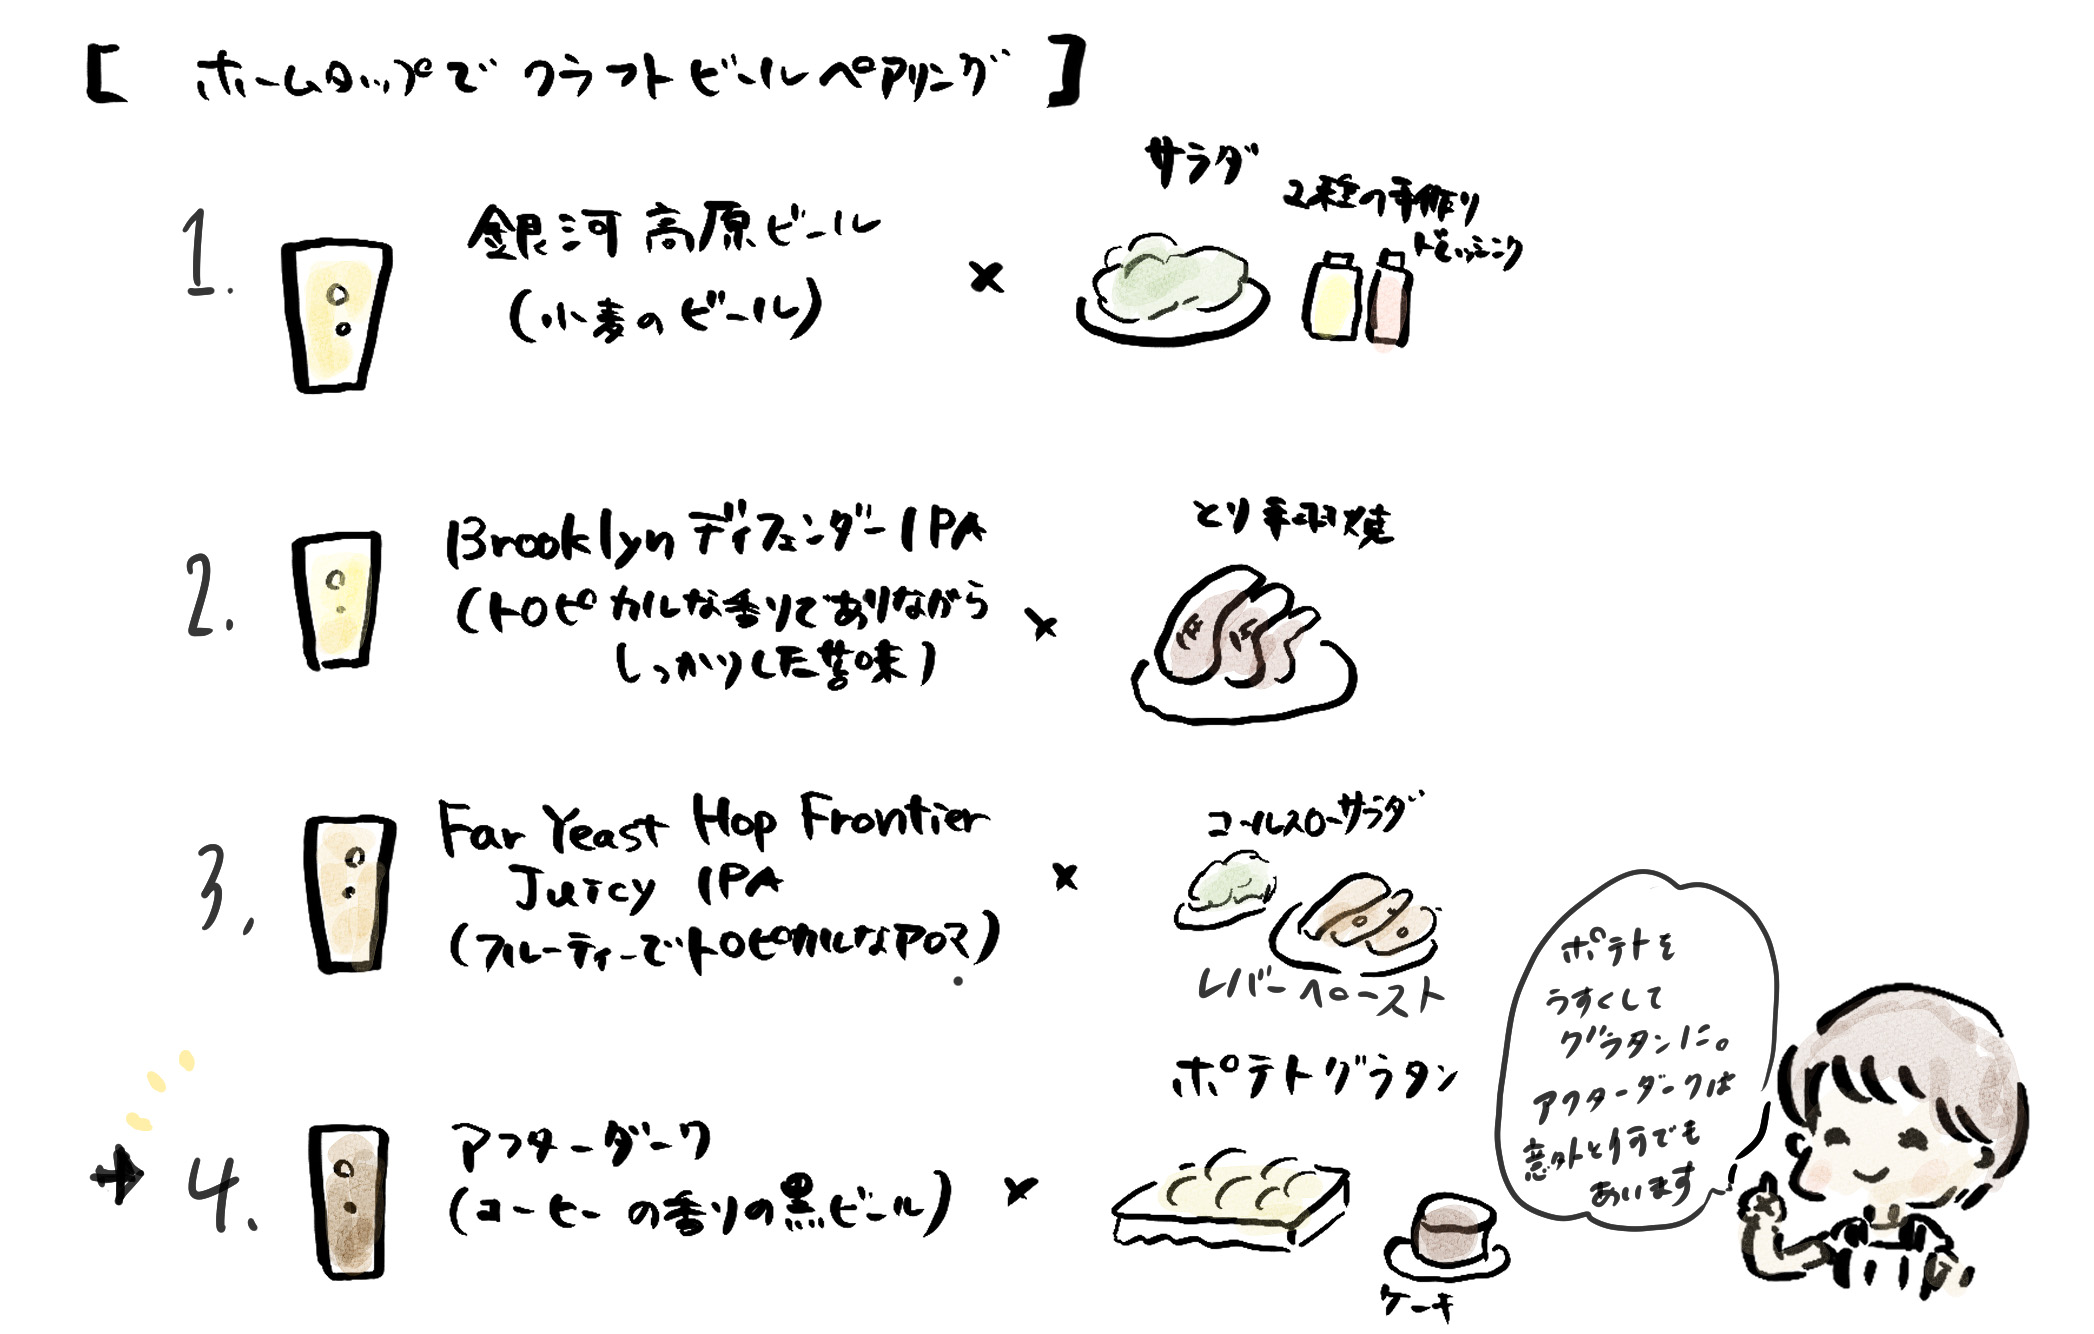 [ ホームタップで クラフトビールペアリング ]
1.
銀河高原ビール
(小麦のビール)
×
サラダ
2種の手作り
ドレッシング
2.
Brooklyn ディフェンダーIPA
(トロピカルな香りでありながら
しっかりした苦味)
×
とり手羽焼
3.
Far Yeast Hop Frontier
Juicy IPA
(フルーティーでトロピカルなアロマ)
×
コールスローサラダ
レバーペースト
→ 4.
アフターダーク
(コーヒーの香りの黒ビール)
×
ポテトグラタン
ケーキ
ポテトを
うすくして
グラタンに。
アフターダークは
意外と何でも
あいます